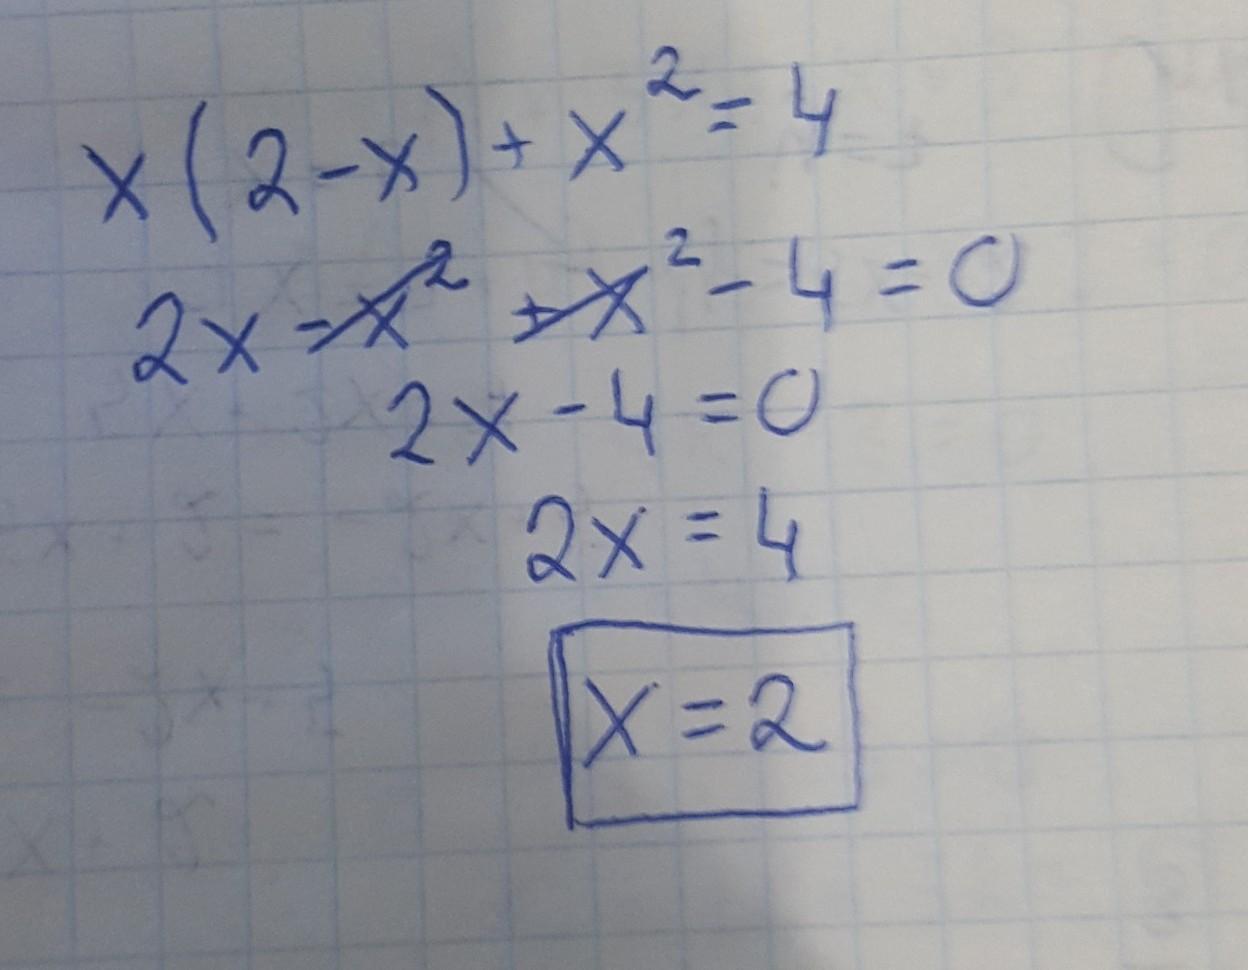 x(2-x)+x²=4
2x-x²+x²-4=0
2x-4=0
2x=4
x=2